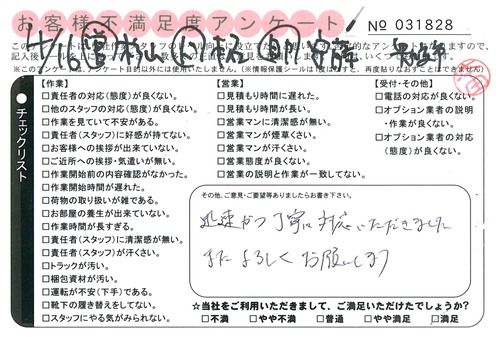 お客様不満足度アンケート
No 031828
チェックリスト
【作業】
□責任者の対応(態度)が良くない。
□他のスタッフの対応(態度)が良くない。
□作業を見ていて不安がある。
□責任者(スタッフ)に好感が持てない。
□お客様への挨拶が出来ていない。
□ご近所への挨拶・気遣いが無い。
□作業開始前の内容確認がなかった。
□作業開始時間が遅れた。
□荷物の取り扱いが雑である。
□お部屋の養生が出来ていない。
□作業時間が長すぎる。
□責任者(スタッフ)に清潔感が無い。
□責任者(スタッフ)が汗くさい。
□トラックが汚い。
□梱包資材が汚い。
□運転が不安(下手)である。
□靴下の履き替えをしてない。
□スタッフにやる気がみられない。
【営業】
□見積もり時間に遅れた。
□見積もり時間が長い。
□営業マンに清潔感が無い。
□営業マンが煙草くさい。
□営業マンが汗くさい。
□営業態度が良くない。
□営業の説明と作業が一致してない。
【受付・その他】
□電話の対応が良くない。
□オプション業者の説明
・作業が良くない。
□オプション業者の対応
(態度)が良くない。
その他、ご意見・ご要望等ありましたらお書き下さい。
迅速かつ丁寧に対応いただきました
またよろしくお願いします
☆当社をご利用いただきまして、ご満足いただけたでしょうか?
□不満 □やや不満 □普通 □やや満足 □満足